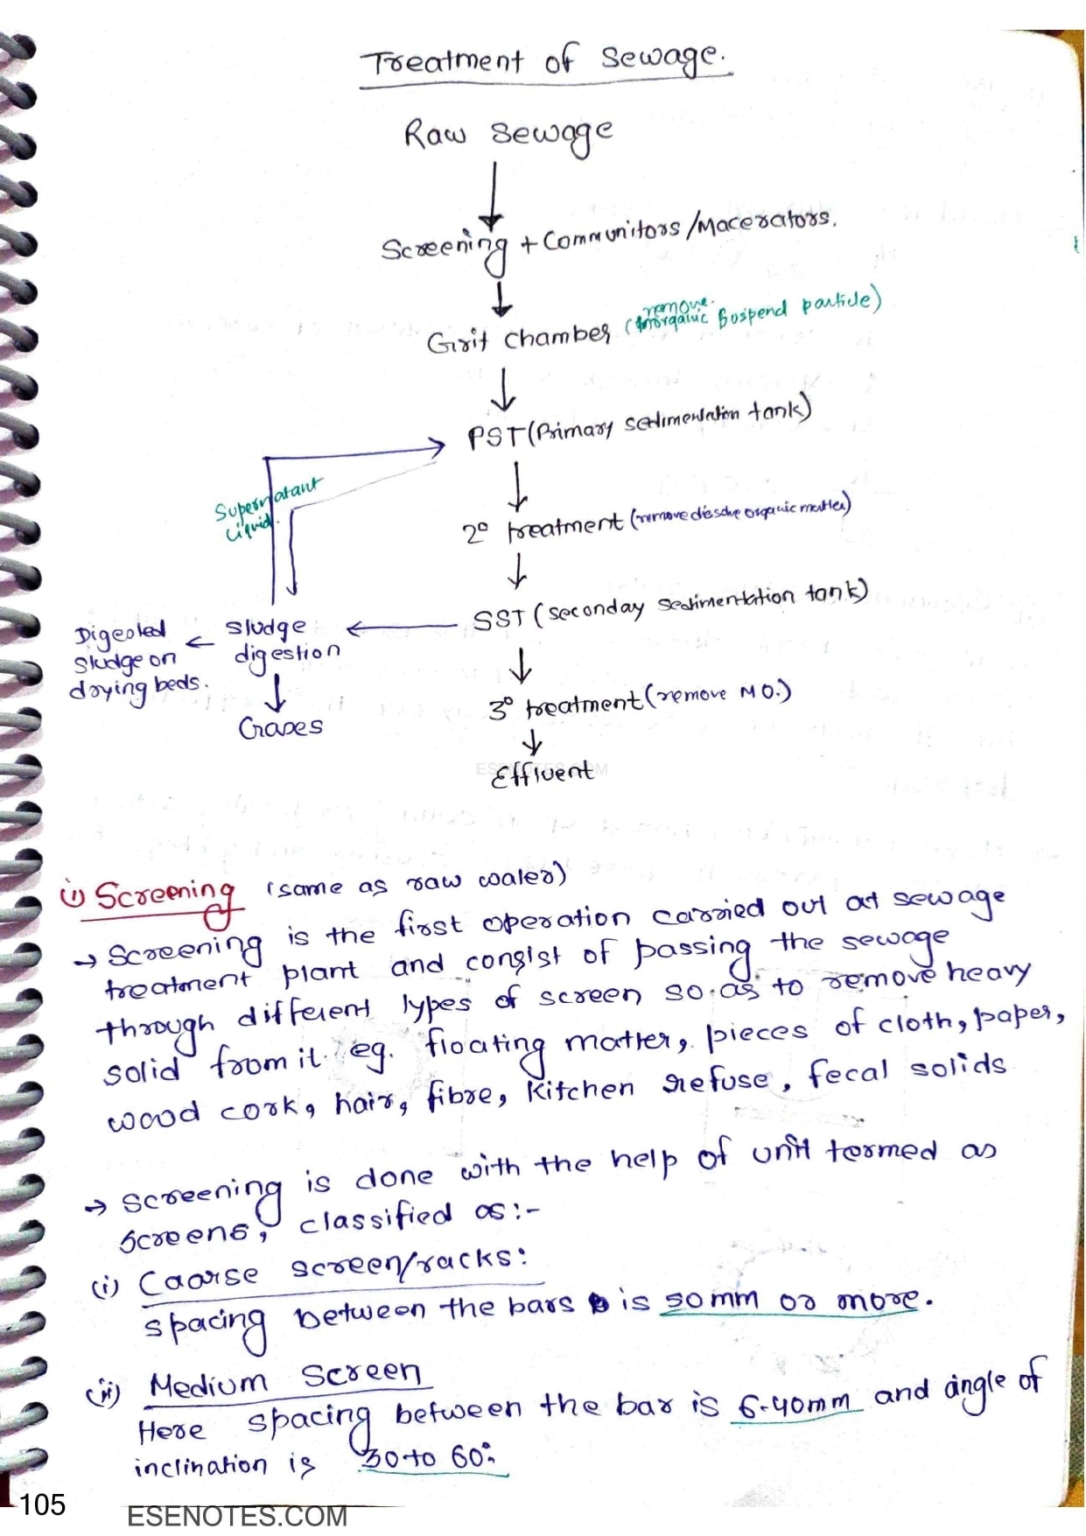 Treatment of Sewage.
Raw sewage
Screening + Communitors/Macerators.
Grit chamber (remove inorganic suspend particle)
PST (Primary sedimentation tank)
Supernatant
Liquid.
2° treatment (remove dissolve organic matter)
SST (seconday sedimentation tank)
sludge
digestion
Digested
sludge on
drying beds.
Gases
3° treatment (remove MO.)
Effluent
ESENOTES.COM
(i) Screening (same as raw water)
→ Screening is the first operation carried out at sewage
treatment plant and consist of passing the sewage
through different types of screen so as to remove heavy
solid from it. eg. floating matter, pieces of cloth, paper,
wood cork, hair, fibre, Kitchen refuse, fecal solids
→ Screening is done with the help of unit termed as
screens, classified as:-
(i) Coarse screen/racks:
spacing between the bars is 50mm or more.
(ii) Medium Screen
Here spacing between the bar is 6-40mm and angle of
inclination is 30 to 60°.
105
ESENOTES.COM